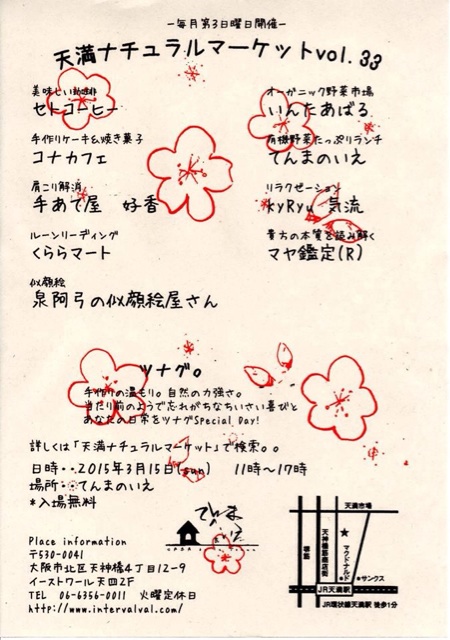 -毎月第3日曜日開催-
天満ナチュラルマーケットvol.33
美味しい珈琲
セトコーヒー
オーガニック野菜市場
いんたあばる
手作りケーキ&焼き菓子
コナカフェ
有機野菜たっぷりランチ
てんまのいえ
肩こり解消
手あて屋 好香
リラクゼーション
kyRyu 気流
ルーンリーディング
くららマート
貴方の本質を読み解く
マヤ鑑定(R)
似顔絵
泉阿弓の似顔絵屋さん
ツナグ。
手作りの温もり。自然の力強さ。
当たり前のようで忘れがちなちいさい喜びと
あなたの日常をツナグSpecial Day!
詳しくは「天満ナチュラルマーケット」で検索。。
日時・・2015年3月15日(sun) 11時〜17時
場所・・てんまのいえ
*入場無料
てんま
のいえ
Place information
〒530-0041
大阪市北区天神橋4丁目12-9
イーストワール天四2F
TEL 06-6356-0011 火曜定休日
http://www.intervalval.com/
天満市場
天神橋筋商店街
マクドナルド
サンクス
JR天満駅
JR環状線天満駅 徒歩1分